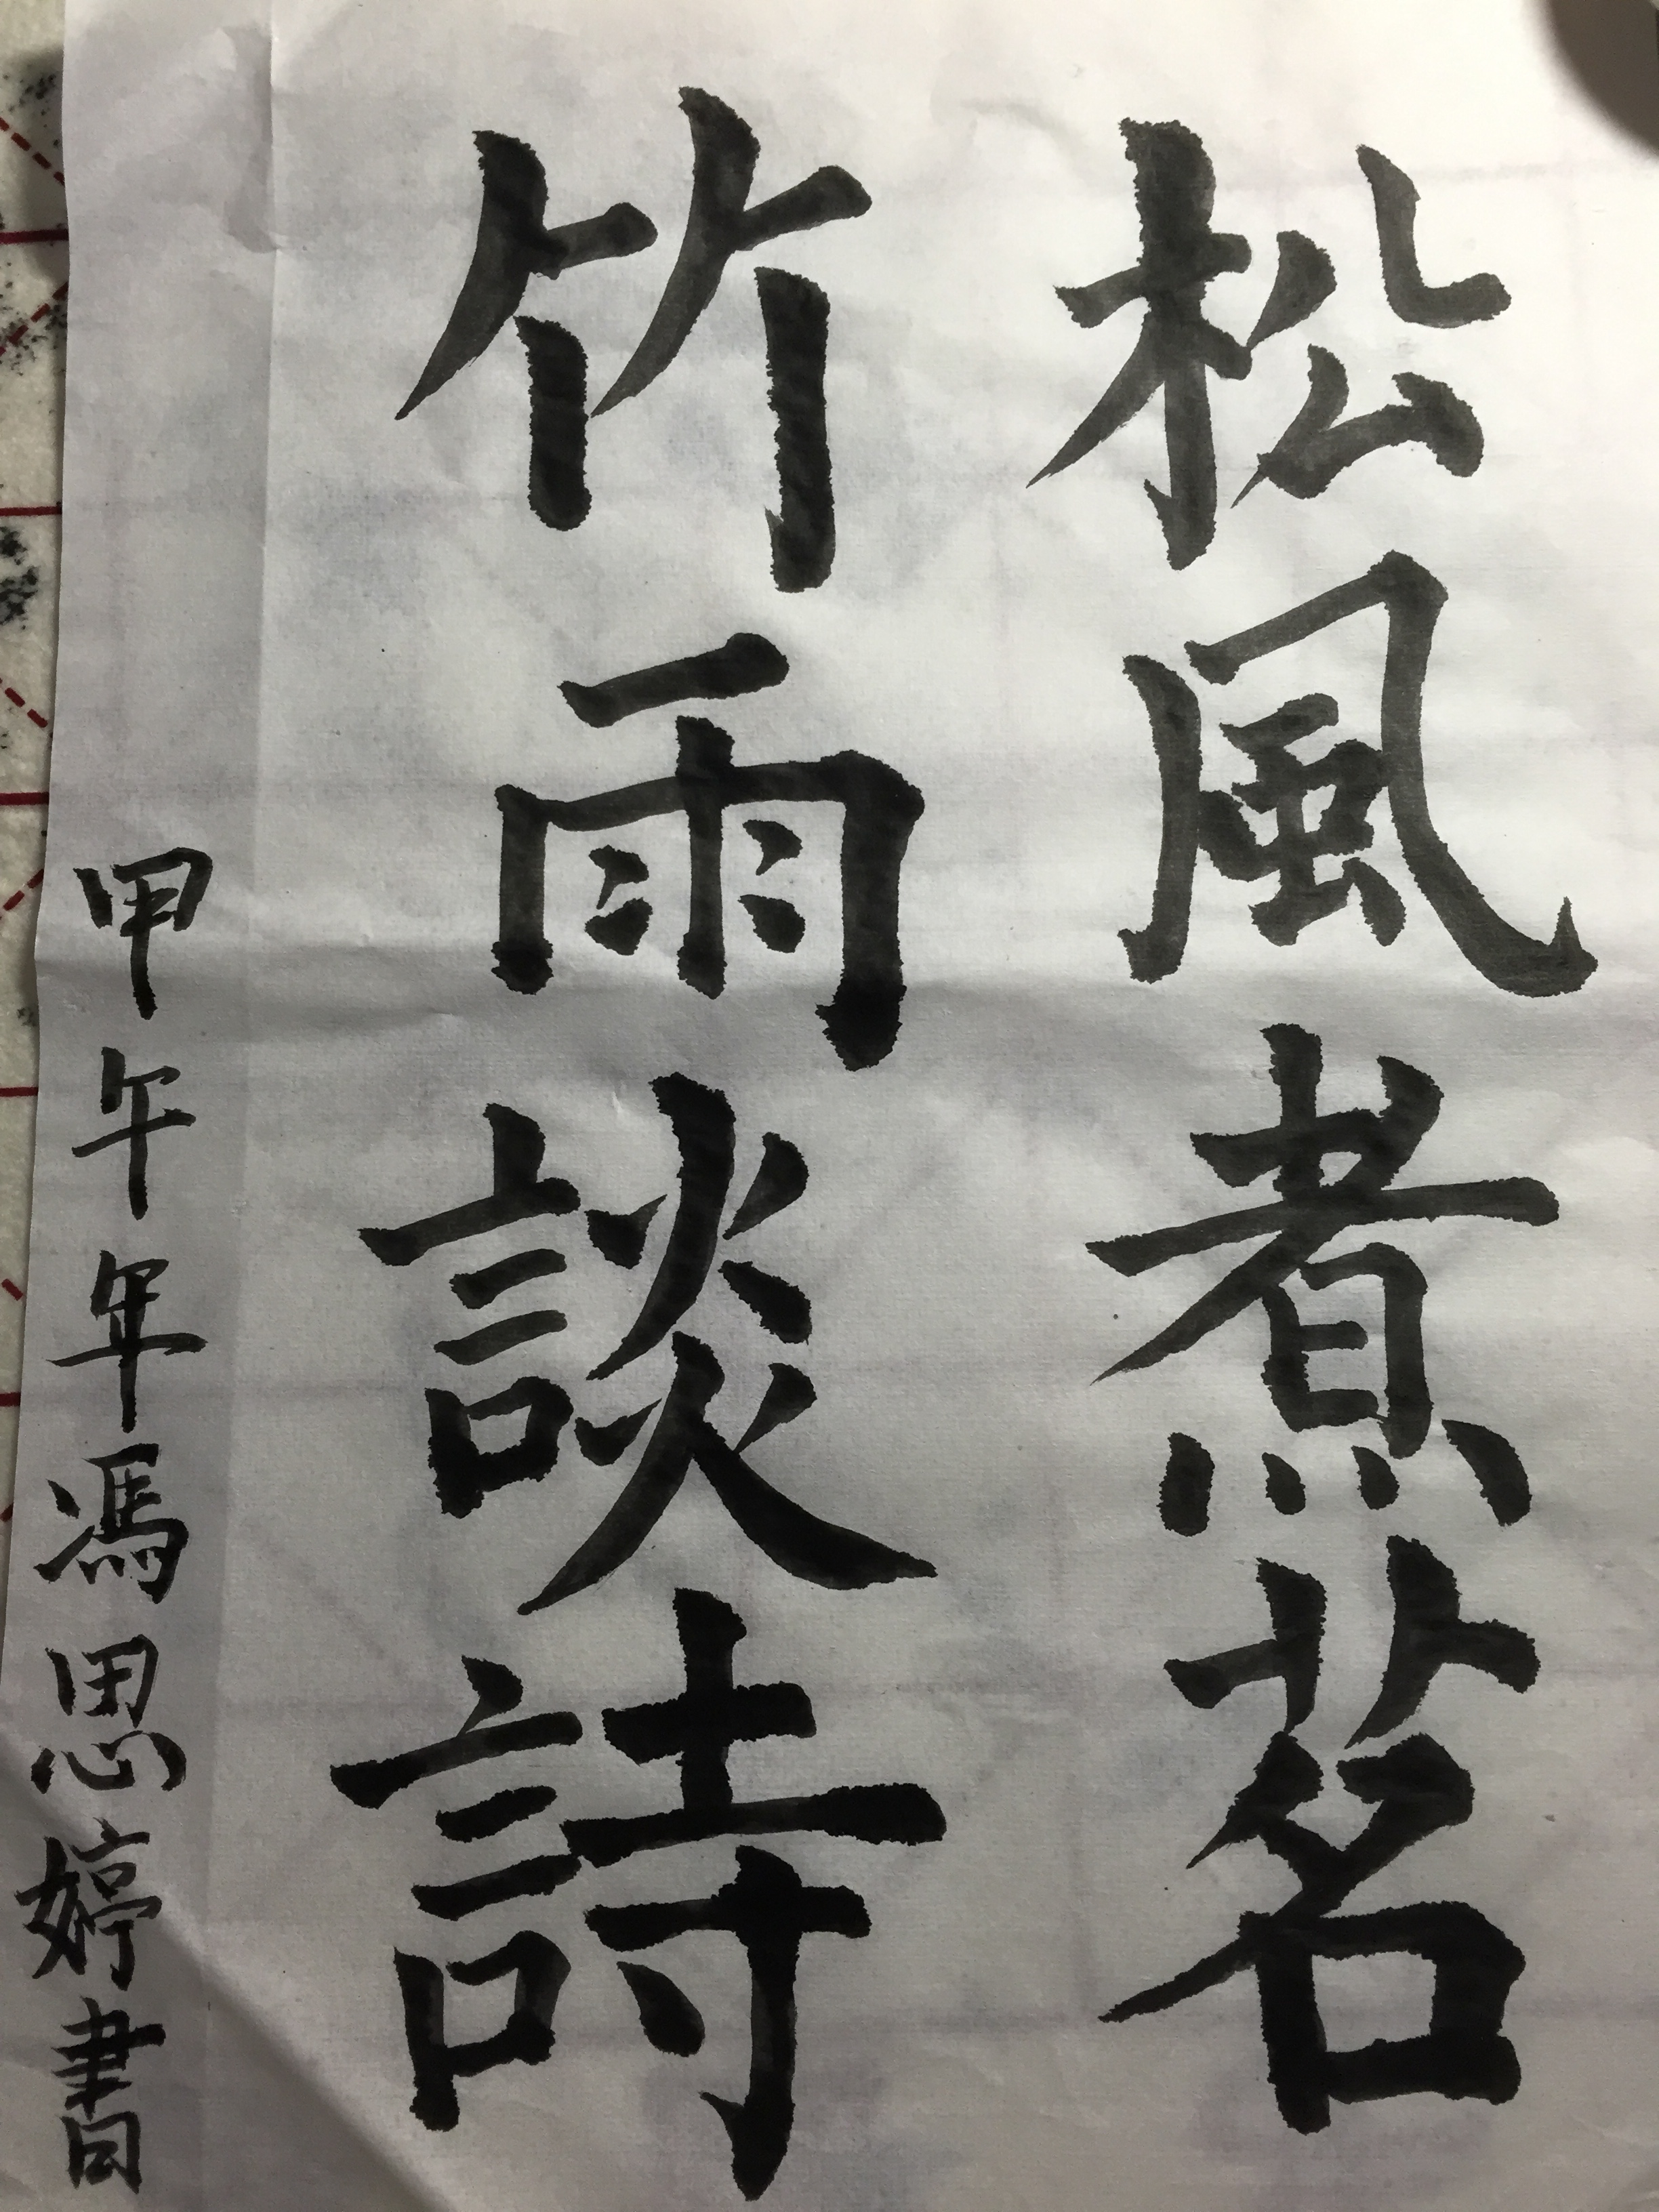 松風煮茗
竹雨談詩
甲午年馮思婷書